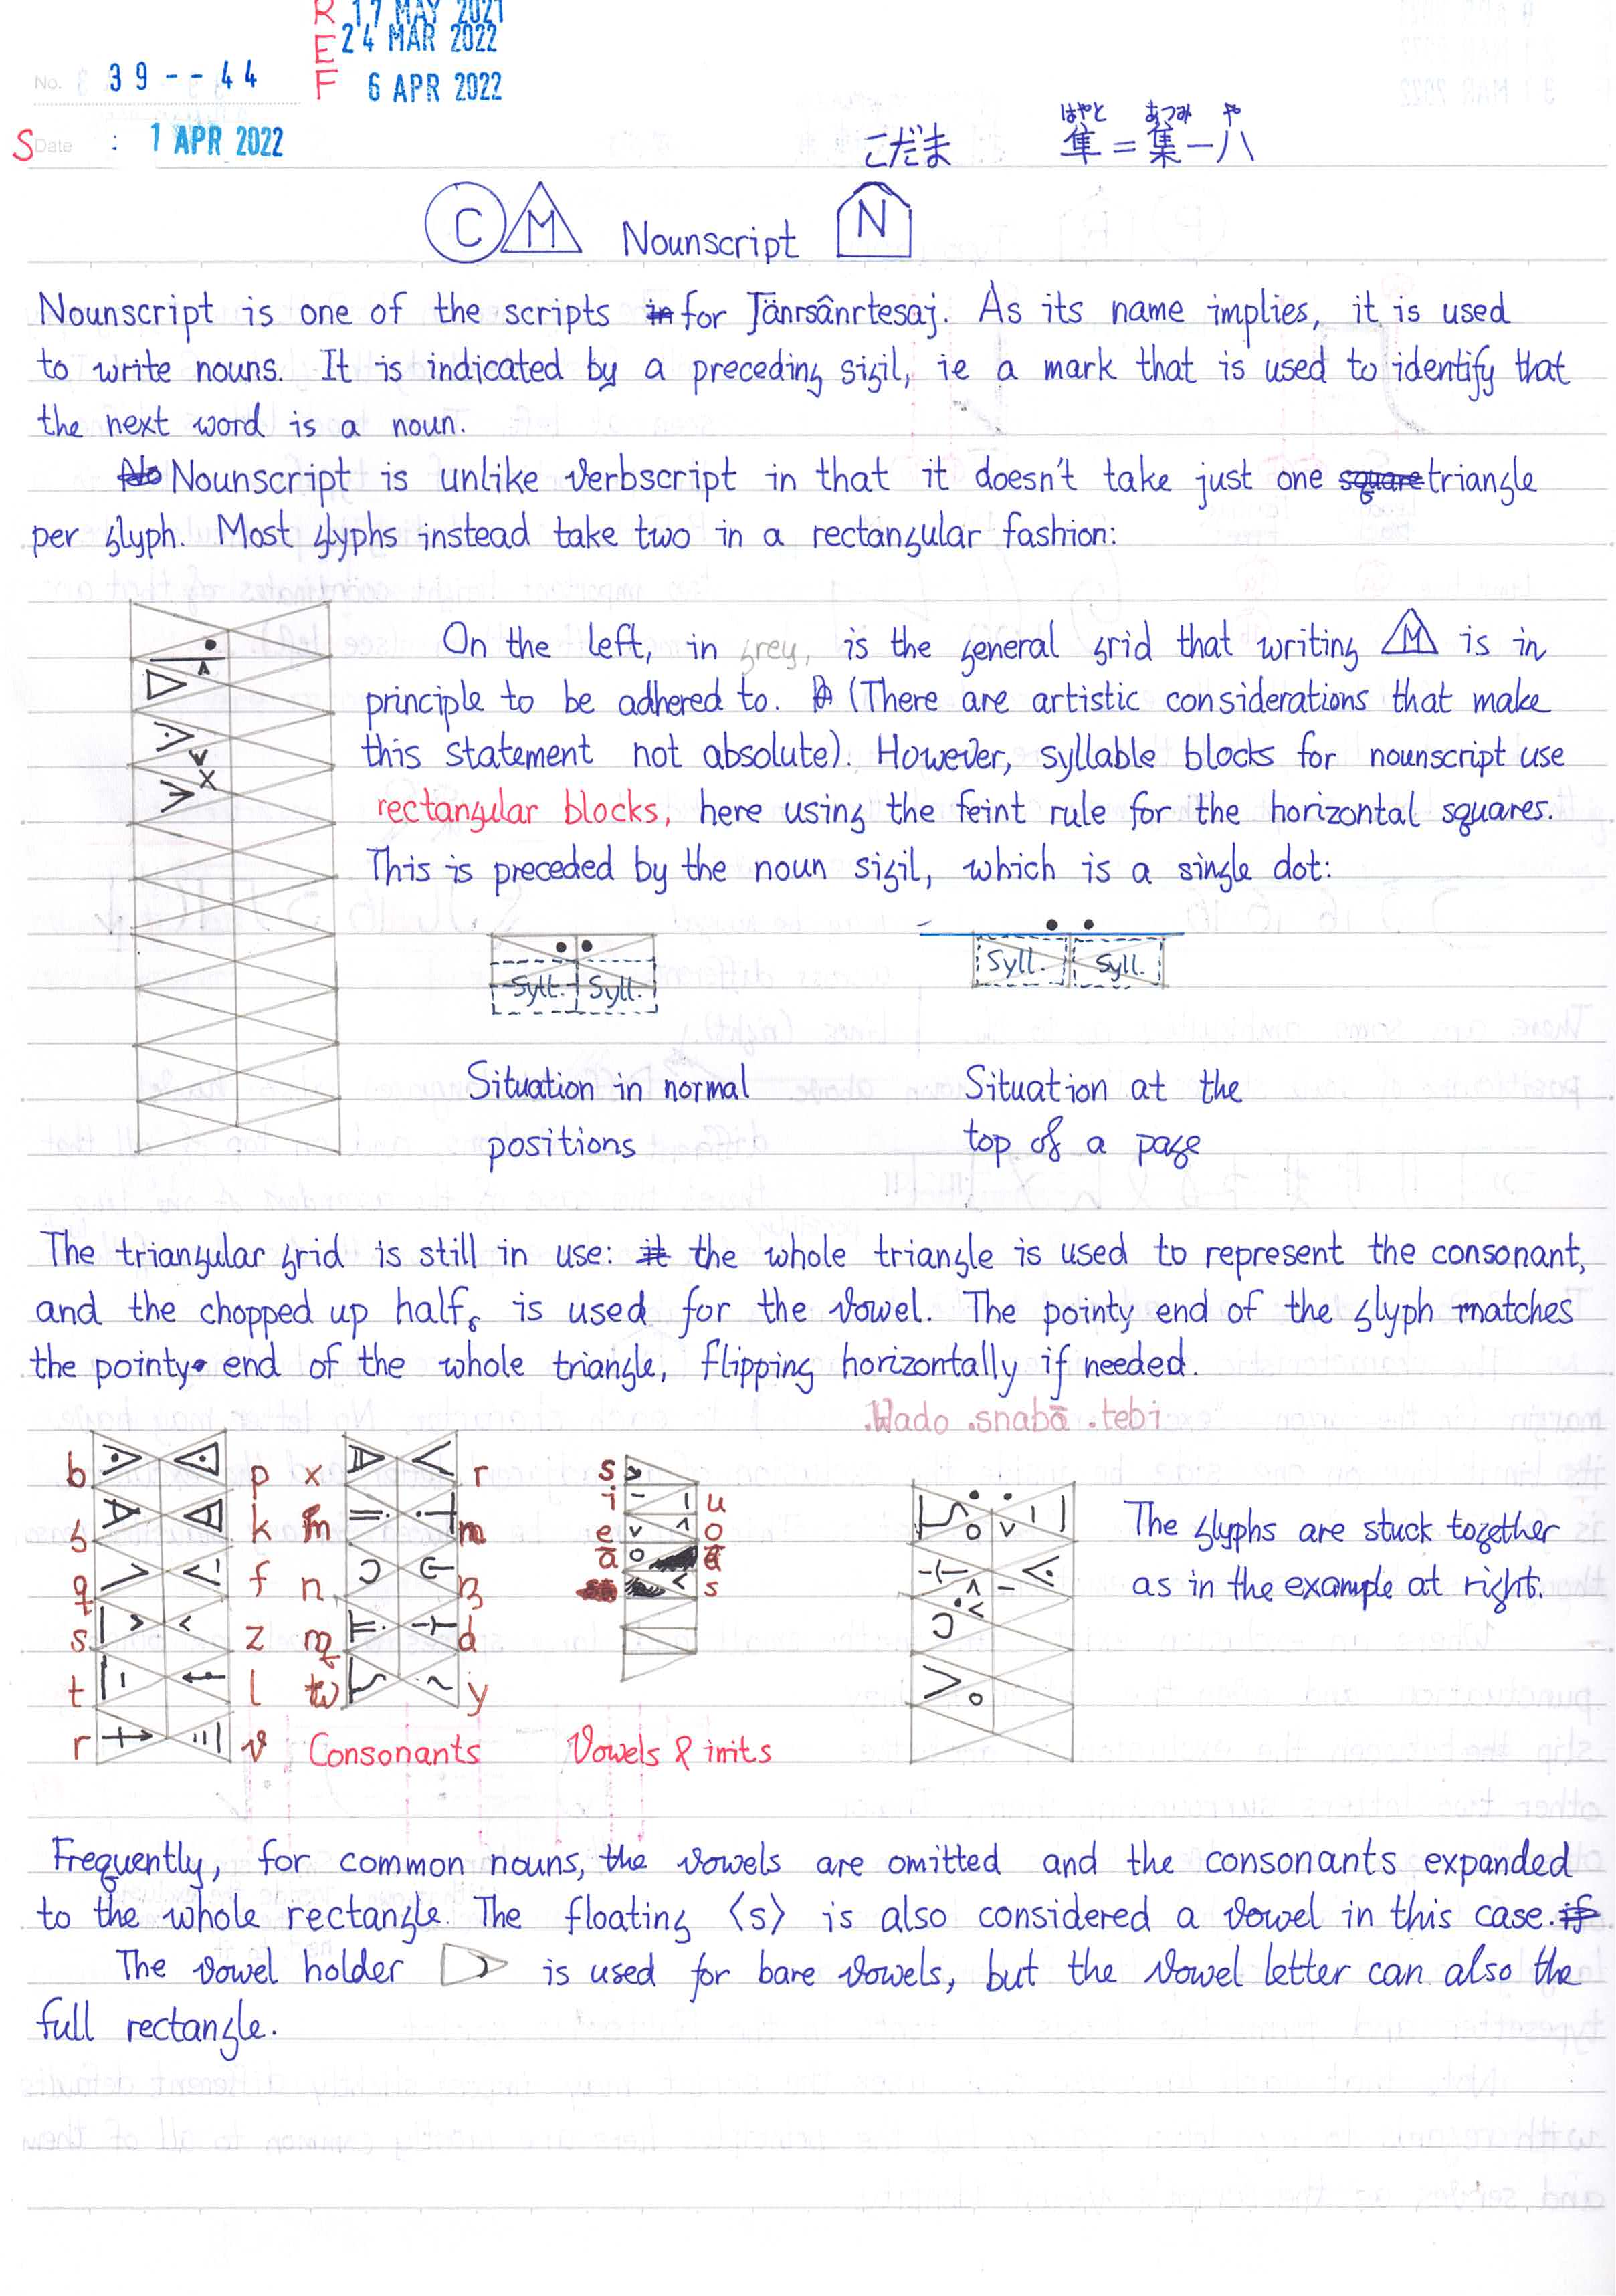 R 17 MAY 2021
E 24 MAR 2022
F 6 APR 2022
No. 39--44
S Date : 1 APR 2022
はやと あつみ や
こだま 隼=集-八
C M Nounscript N
Nounscript is one of the scripts in for Jänrsânrtesaj. As its name implies, it is used
to write nouns. It is indicated by a preceding sigil, ie a mark that is used to identify that
the next word is a noun.
No Nounscript is unlike verbscript in that it doesn't take just one square triangle
per glyph. Most glyphs instead take two in a rectangular fashion:
On the left, in grey, is the general grid that writing M is in
principle to be adhered to. (There are artistic considerations that make
this statement not absolute). However, syllable blocks for nounscript use
rectangular blocks, here using the feint rule for the horizontal squares.
This is preceded by the noun sigil, which is a single dot:
Syll. Syll.
Syll. Syll.
Situation in normal
positions
Situation at the
top of a page
The triangular grid is still in use: it the whole triangle is used to represent the consonant,
and the chopped up half, is used for the vowel. The pointy end of the glyph matches
the pointy end of the whole triangle, flipping horizontally if needed.
.Wado .snabā .tebi
b p x r
g k m
q f n
s z d
t l w y
r v
s
i u
e o
ā
s
Consonants
Vowels & inits
The glyphs are stuck together
as in the example at right.
Frequently, for common nouns, the vowels are omitted and the consonants expanded
to the whole rectangle. The floating ⟨s⟩ is also considered a vowel in this case. if
The vowel holder is used for bare vowels, but the vowel letter can also the
full rectangle.